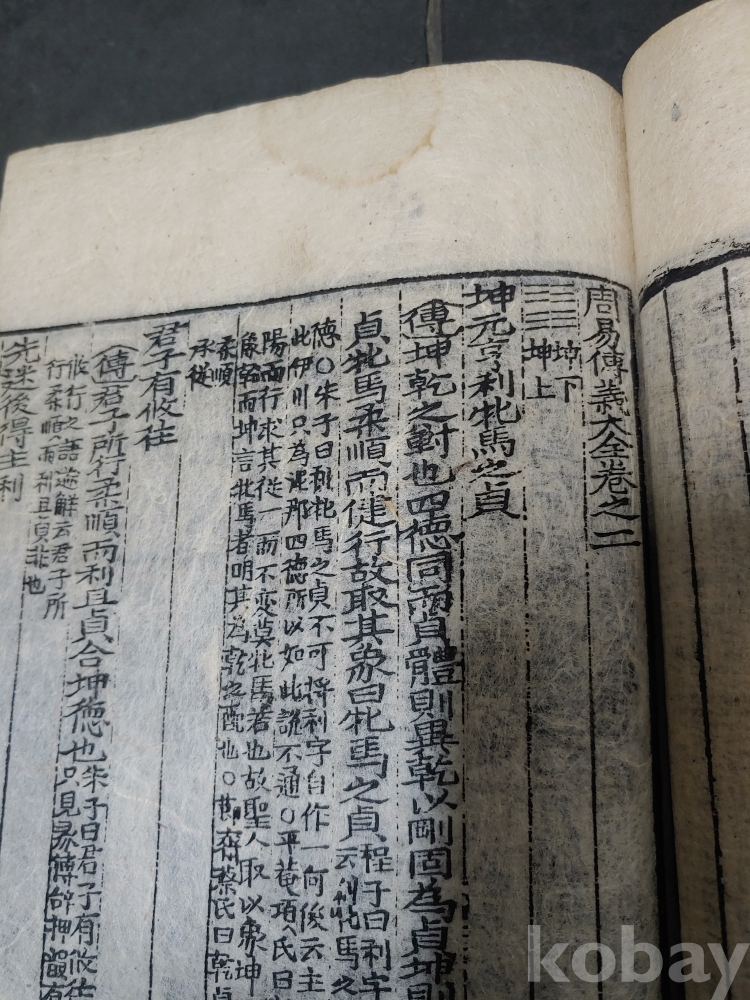 周易傳義大全卷之二
坤下
坤上
坤元亨利牝馬之貞
傳坤乾之對也四德同而貞體則異乾以剛固為貞坤則
貞牝馬柔順而健行故取其象曰牝馬之貞 程子曰利字
云利牝馬之
德○朱子曰利牝馬之貞不可將利字自作一句後云主
此伊川只為泥那四德所以如此說不通○平菴項氏曰
陽而行求其從一而不变莫牝馬若也故聖人取以象坤
象乾而坤言牝馬者明其為乾之配也○節齋蔡氏曰乾貞
柔順
承從
君子有攸往
傳君子所行柔順而利且貞合坤德也 朱子曰君子有攸往
只見易傳辞押韻有
攸行之語遂解云君子所
行柔順而利且貞非也
先迷後得主利
kobay